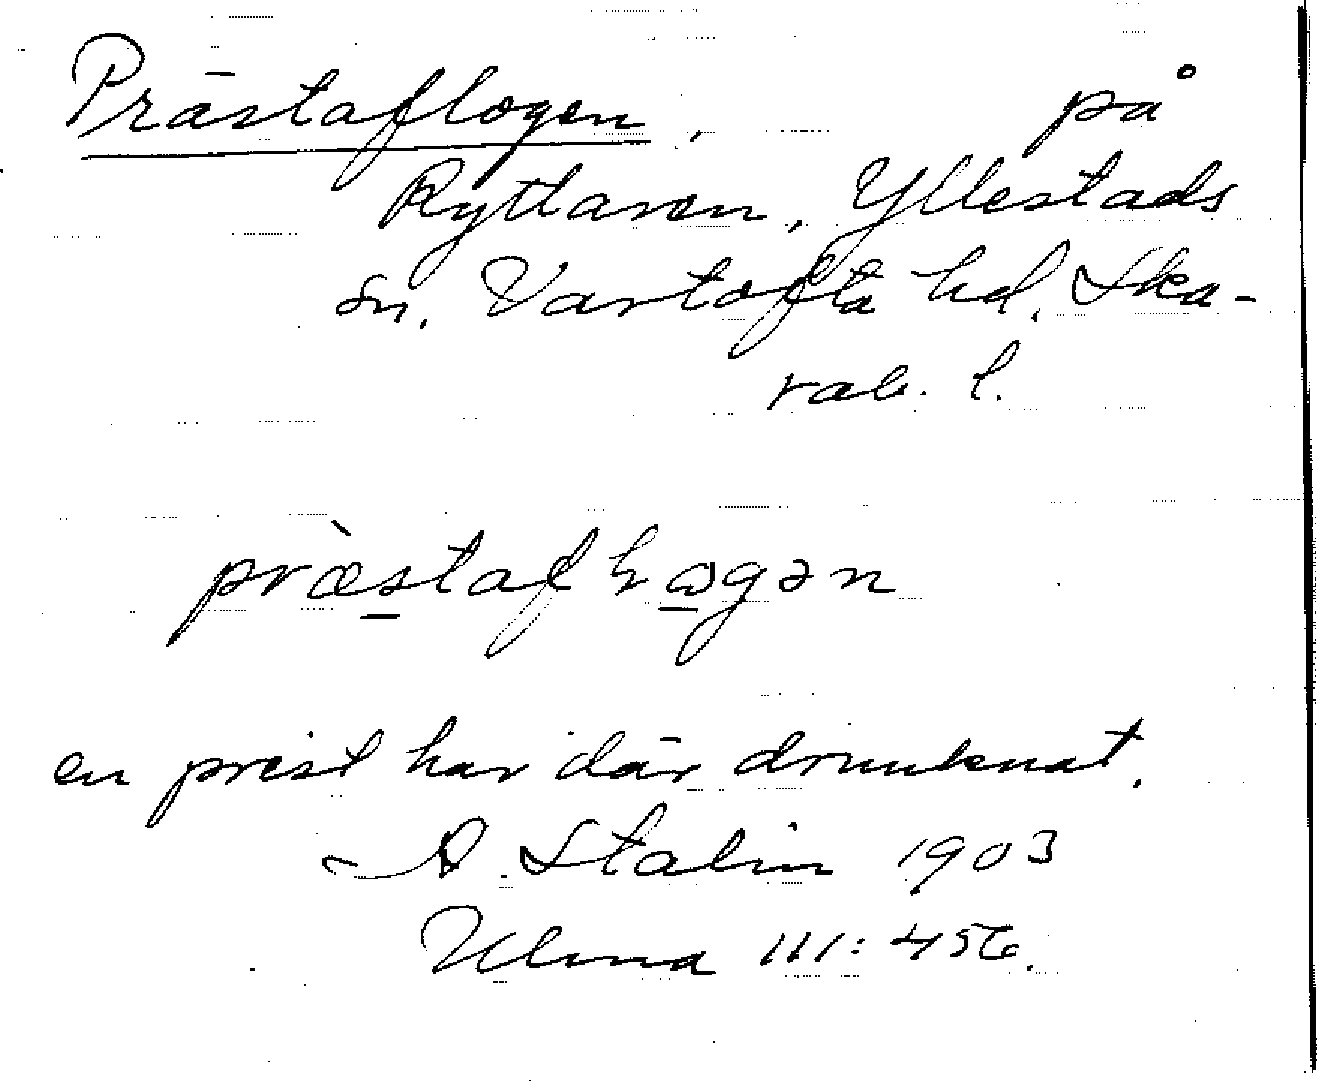 Prästaflogen, på
Ryttaren, Yllestads
sn. Vartofta hd. Ska-
rab. l.
præstaf
en prest har där drunknat.
A. Stalin 1903
Ulma 111: 456.